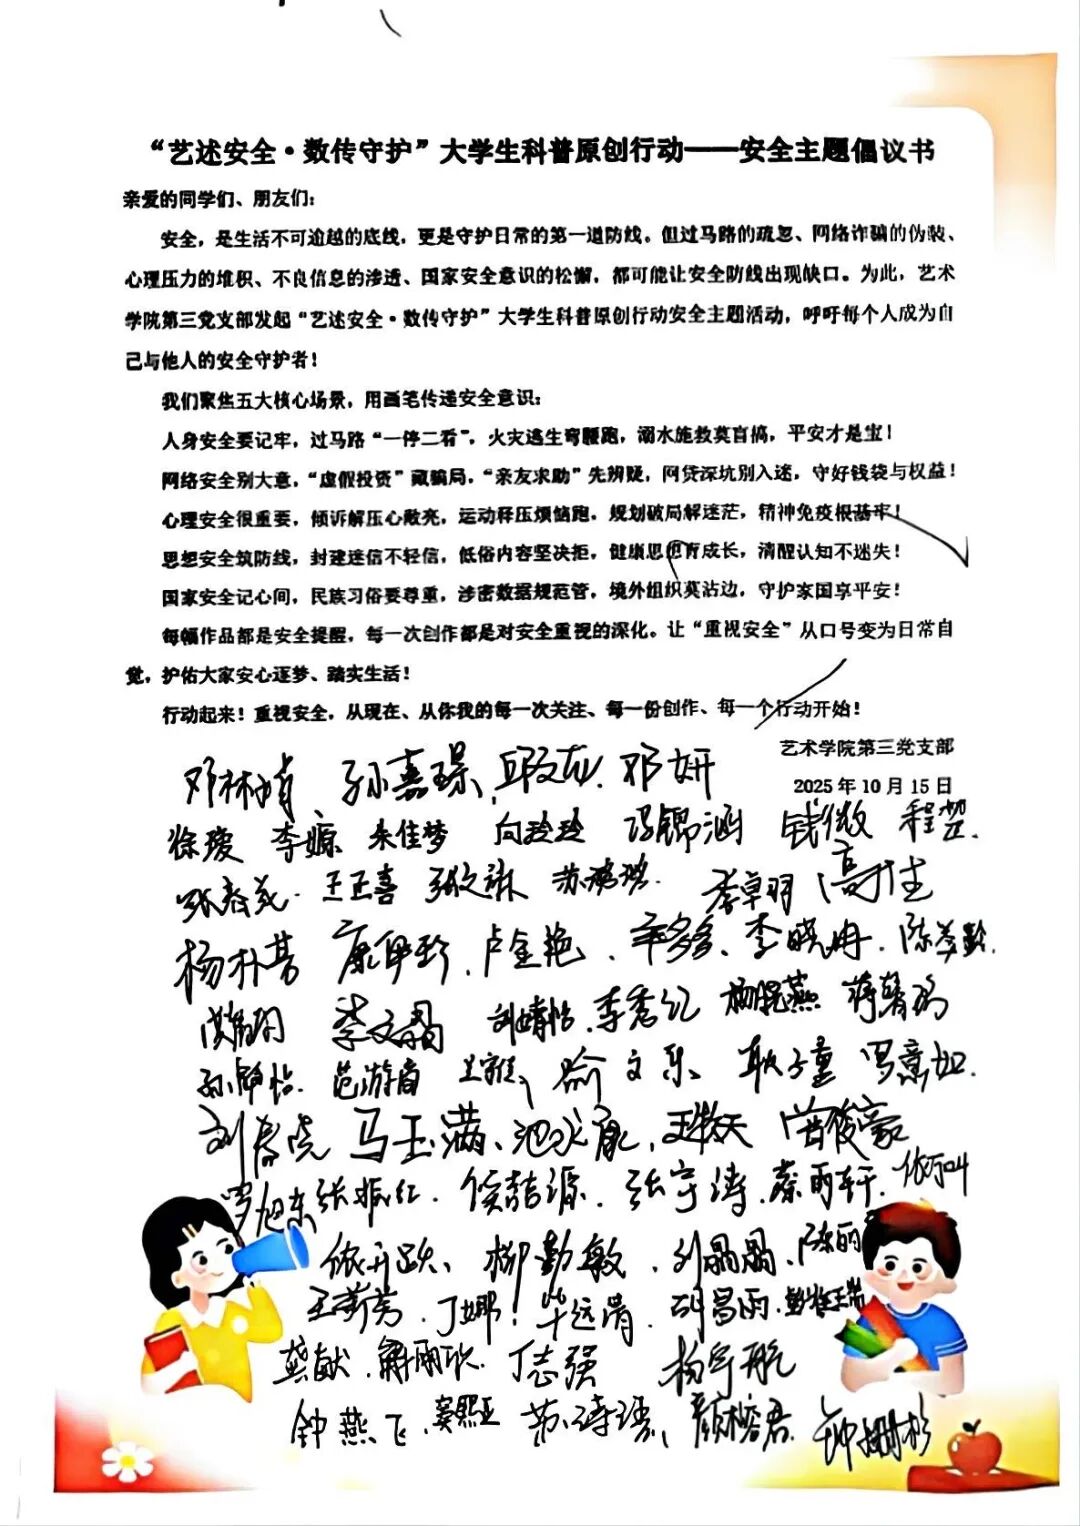 “艺述安全·数传守护”大学生科普原创行动——安全主题倡议书
亲爱的同学们、朋友们：
安全，是生活不可逾越的底线，更是守护日常的第一道防线。但过马路的疏忽、网络诈骗的伪装、
心理压力的堆积、不良信息的渗透、国家安全意识的松懈，都可能让安全防线出现缺口。为此，艺术
学院第三党支部发起“艺述安全·数传守护”大学生科普原创行动安全主题活动，呼吁每个人成为自
己与他人的安全守护者！
我们聚焦五大核心场景，用画笔传递安全意识：
人身安全要记牢，过马路“一停二看”，火灾逃生弯腰跑，溺水施救莫盲搞，平安才是宝！
网络安全别大意，“虚假投资”藏骗局，“亲友求助”先辨疑，网贷深坑别入迷，守好钱袋与权益！
心理安全很重要，倾诉解压心敞亮，运动释压烦恼跑，规划破局解迷茫，精神免疫根基牢！
思想安全筑防线，封建迷信不轻信，低俗内容坚决拒，健康思想育成长，清醒认知不迷失！
国家安全记心间，民族习俗要尊重，涉密数据规范管，境外组织莫沾边，守护家国享平安！
每幅作品都是安全提醒，每一次创作都是对安全重视的深化。让“重视安全”从口号变为日常自
觉，护佑大家安心逐梦、踏实生活！
行动起来！重视安全，从现在、从你我的每一次关注、每一份创作、每一个行动开始！
艺术学院第三党支部
2025年10月15日
孙嘉璟 邓妍
徐瑷 李嫄 朱佳梦 向玲玲 冯锦涵 钱微 程楚
王正喜 李卓羽 高佳
卢金艳 李晓冉
李文晶 刘婧怡 李秀红 杨晓燕
范游省 喻文乐 耿子童 冯意如
马玉满 曾俊豪
罗旭东 张振红 侯喆源 张宇涛 秦雨轩
柳勤敏 刘晶晶 陈丽
王新芳 丁娜 毕远清 胡昌雨
龚献 丁志强 杨宇航
钟燕飞 颜榕君 钟珊杉